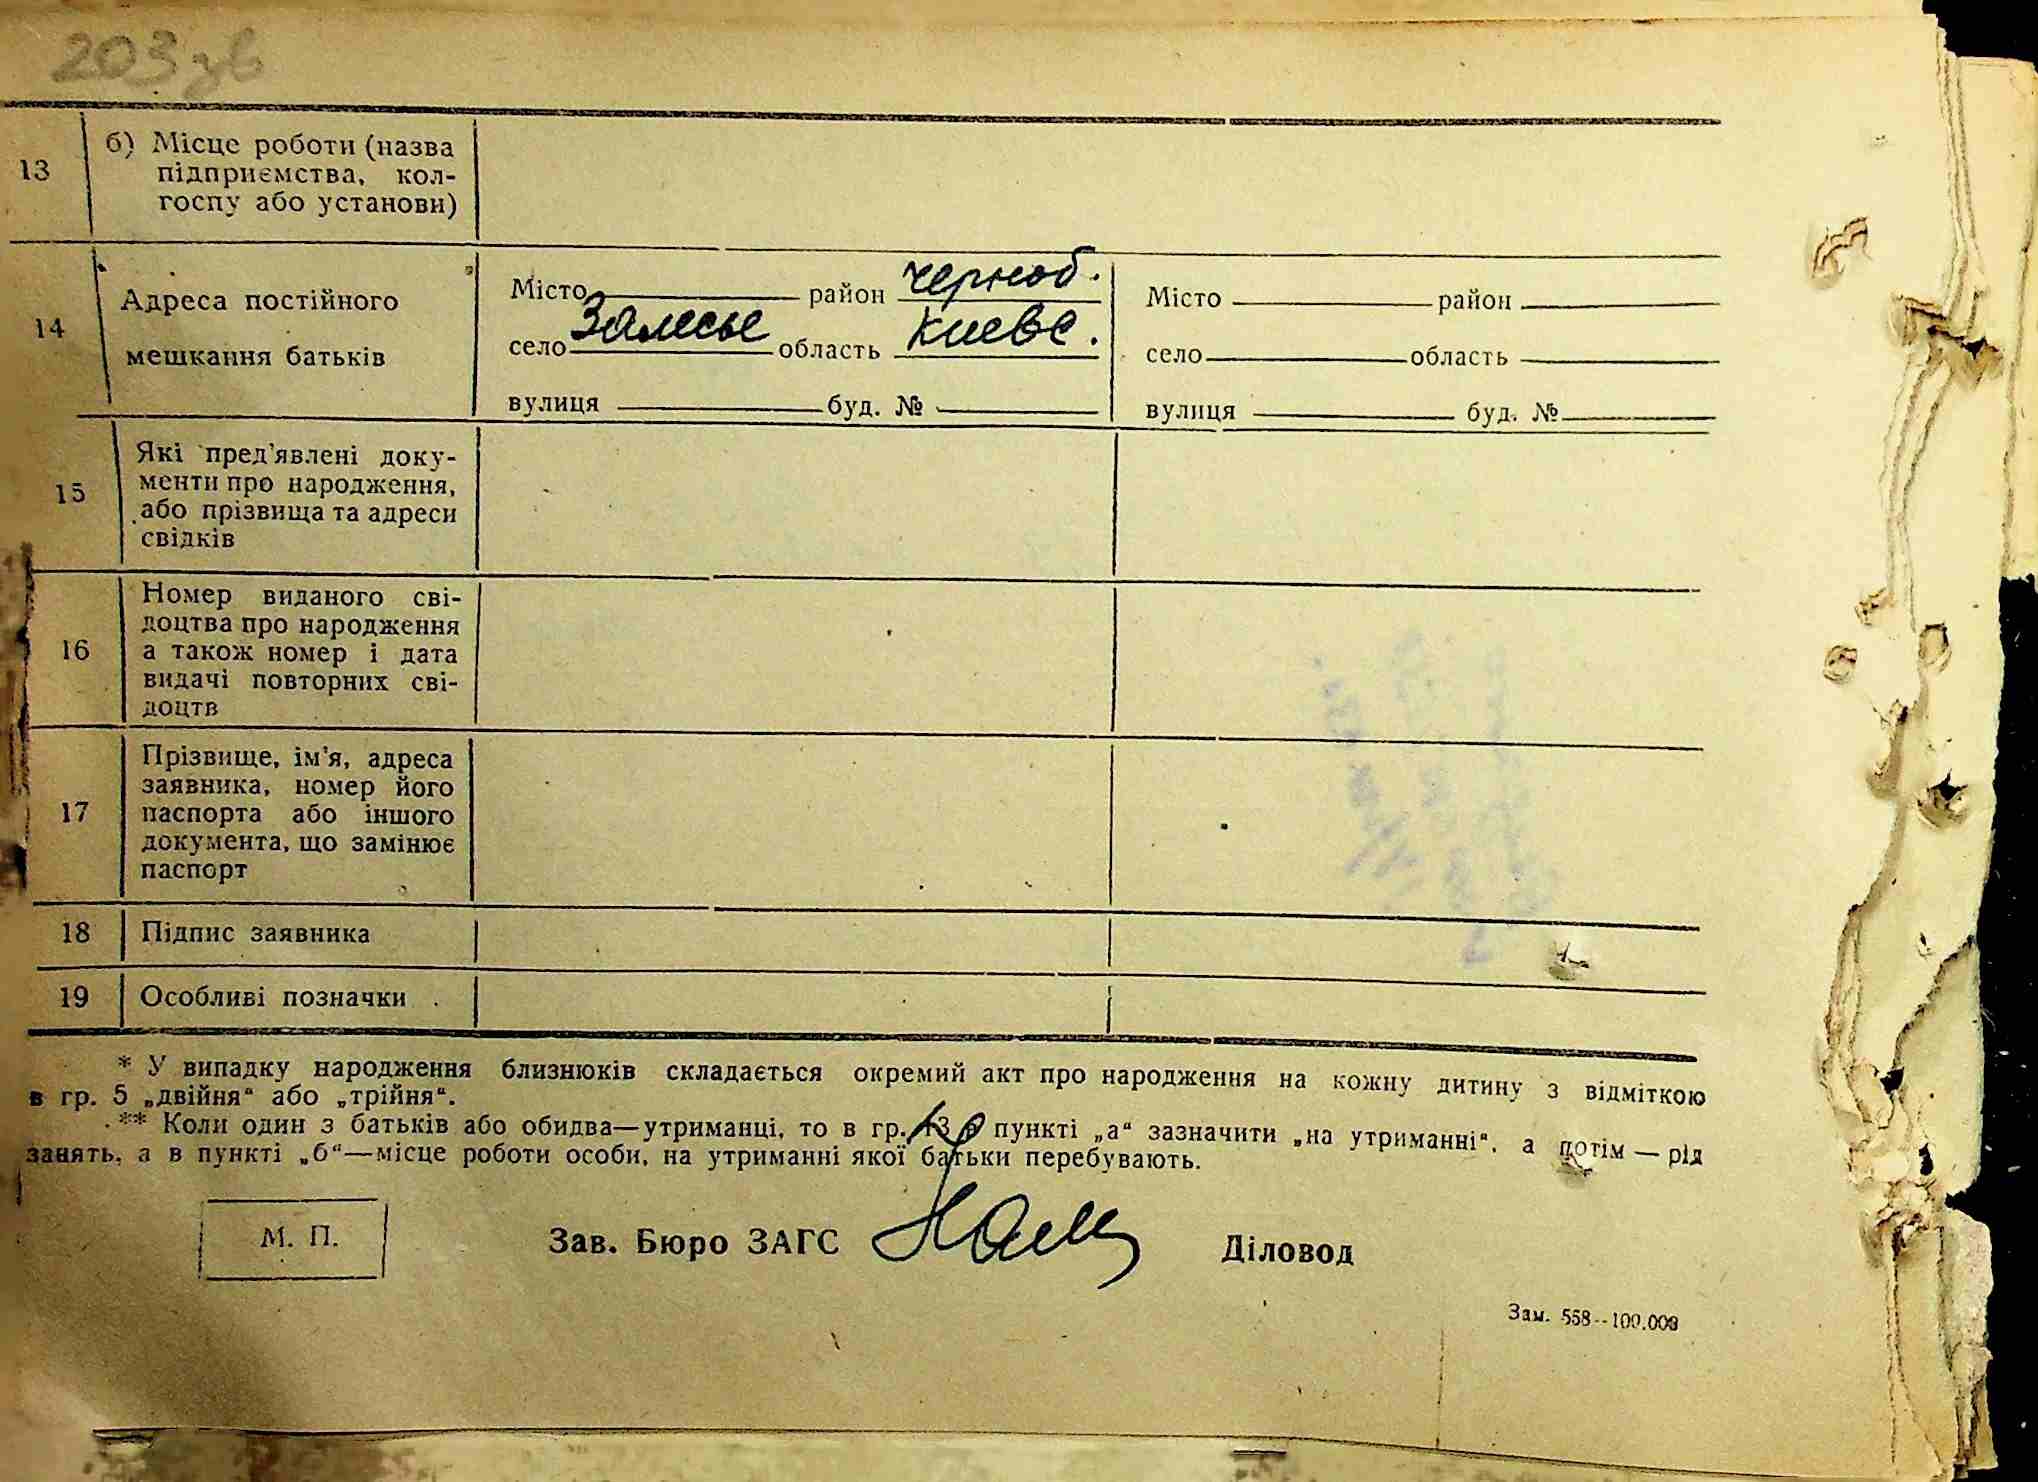 203 зв
13
б) Місце роботи (назва
підприємства, кол-
госпу або установи)
14
Адреса постійного
мешкання батьків
Місто район черноб.
село Залесье область Киевс.
вулиця буд. №
Місто район
село область
вулиця буд. №
15
Які пред'явлені доку-
менти про народження,
або прізвища та адреси
свідків
16
Номер виданого сві-
доцтва про народження
а також номер і дата
видачі повторних сві-
доцтв
17
Прізвище, ім'я, адреса
заявника, номер його
паспорта або іншого
документа, що замінює
паспорт
18 Підпис заявника
19 Особливі позначки
* У випадку народження близнюків складається окремий акт про народження на кожну дитину з відміткою
в гр. 5 „двійня“ або „трійня“.
** Коли один з батьків або обидва—утриманці, то в гр. 13 в пункті „а“ зазначити „на утриманні“, а потім — рід
занять, а в пункті „б“—місце роботи особи, на утриманні якої батьки перебувають.
М. П.
Зав. Бюро ЗАГС
Діловод
Зам. 558--100.000